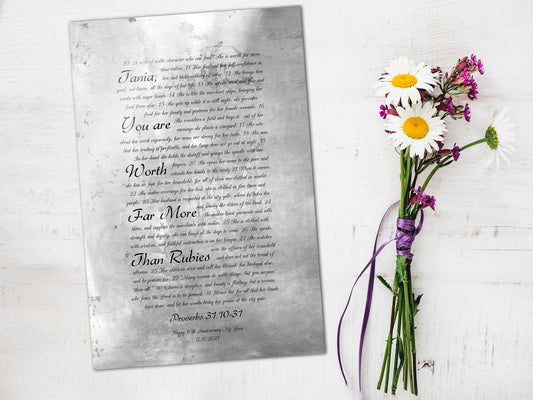 10 A wife of noble character who can find? She is worth far more
than rubies. 11 Her husband has full confidence in
Tania,
her and lacks nothing of value. 12 She brings him
good, not harm, all the days of her life. 13 She selects wool and flax and
works with eager hands. 14 She is like the merchant ships, bringing her
food from afar. 15 She gets up while it is still night; she provides
food for her family and portions for her female servants. 16
You are
She considers a field and buys it; out of her
earnings she plants a vineyard. 17 She sets
about her work vigorously; her arms are strong for her tasks. 18 She sees
that her trading is profitable, and her lamp does not go out at night. 19
In her hand she holds the distaff and grasps the spindle with her
Worth
fingers. 20 She opens her arms to the poor and
extends her hands to the needy. 21 When it snows,
she has no fear for her household; for all of them are clothed in scarlet.
22 She makes coverings for her bed; she is clothed in fine linen and
purple. 23 Her husband is respected at the city gate, where he takes his
Far More
seat among the elders of the land. 24
She makes linen garments and sells
them, and supplies the merchants with sashes. 25 She is clothed with
strength and dignity; she can laugh at the days to come. 26 She speaks
with wisdom, and faithful instruction is on her tongue. 27 She watches
Than Rubies
over the affairs of her household
and does not eat the bread of
idleness. 28 Her children arise and call her blessed; her husband also,
and he praises her: 29 "Many women do noble things, but you surpass
them all." 30 Charm is deceptive, and beauty is fleeting; but a woman
who fears the Lord is to be praised. 31 Honor her for all that her hands
have done, and let her works bring her praise at the city gate.
Proverbs 31:10-31
Happy 10th Anniversary My Love
5.30.2023